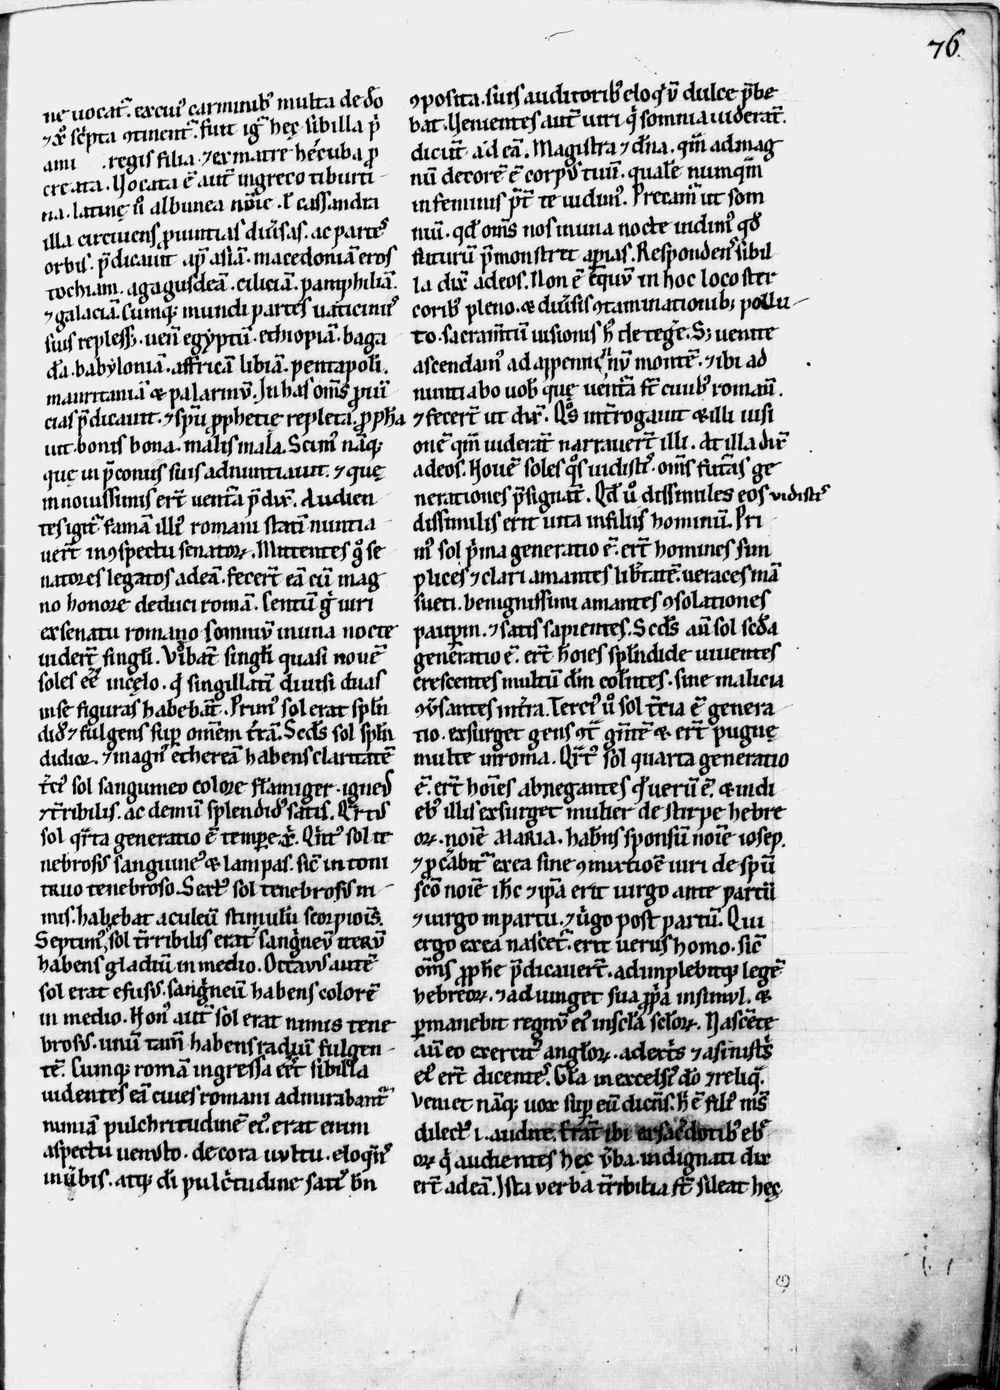 76.
ne uocat̃. ex cuiꝰ carminibꝰ multa de dõ
⁊ xp̃o sc̃pta ꝯtinent̃. fuit ig̃ hęc sibilla p̃
ami regis filia. ⁊ ex matre hecuba p̃
creata. Uocata ẽ aut̃ in greco tiburti
na. latinę ũ albunea nõie. ł cassandra
illa circuiens ꝓuintias diũsas. ac partes
orbis. p̃dicauit apͥ asiã. macedoniã eros
tochiam. agagusdeã. ciliciã. pamphiliã.
⁊ galaciã. Cumqꝫ mundi partes uaticiniis
suis replesṡꝫ. uenͥ egyptũ. ethiopiã. baga
dã. babyloniã. affricã libiã. pentapoli.
mauritaniã & palarinũ. In has om̃s ꝓuī
cias p̃dicauit. ⁊ sp̃u ꝓphetię repleta. ꝓpha
uit. bonis bona. malis mala. Scimꝰ nãqꝫ
quę ui p̃coniis suis adnuntiauit. ⁊ quę
in nouissimis ert̃ uent̃a p̃dix̃. Audien
tes igit̃ famã illiꝰ romani statĩ nuntia
uert̃ in ꝯspectu senatoꝝ. Mittentes gͦ se
natores legatos ad eã. fecert̃ eã cũ mag
no honore deduci romã. Sentũ g̃ uiri
ex senatu romano somniũ in una nocte
uidert̃ singłi. Vͥdebat̃ singłi quasi nouẽ
soles eẽ in cęlo. qͥ singillatĩ diuisi duas
in se figuras habebãt. Primꝰ sol erat splẽ
didꝰ ⁊ fulgens sup omẽm t̃rã. Scd̃s sol splẽ
didior. ⁊ magnꝰ ẽtheream habens claritatẽ
t̃ciꝰ sol sanguineo colore flãmiger. igneꝰ
⁊ t̃ribilis. ac demũ splendidꝰ satis. Qr̃tus
sol qr̃ta generatio ẽ tempe xp̃i. Qĩt̃ꝰ sol te
nebrosꝰ sanguineꝰ & lampas. sic̃ in toni
truo tenebroso. Sextꝰ sol tenebrosꝰ ni
mis. habebat aculeũ stimulũ scorpionis.
Septimꝰ sol t̃ribilis erat sanguineũ iterũ
habens gladiũ in medio. Octauꝰ autẽ
sol erat efusꝰ. sanguineũ habens colorẽ
in medio. Nonꝰ aut̃ sol erat nimis tene
brosꝰ. unũ tam̃ habens radiũ fulgen
tẽ. Cumqꝫ romã ingressa eẽt sibilla
uidentes eã ciues romani admirabant̃
nimiã pulchritudinẽ eiꝰ. erat enim
aspectu uenusto. decora uultu. eloquẽs
in ũbis. atqꝫ oĩ pulc̃tudine satis bñ
ꝯposita. suis auditoribꝰ eloqͥũ dulce p̃be
bat. Uenientes aut̃ uiri qͥ somnia uiderat̃.
dicũt ad eã. Magistra ⁊ dña. qm̃ ad mag
nũ decorẽ ẽ corpꝰ tuũ. qualẽ nunqͣm
in feminis p̃t te uidimꝰ. Precam̃ ut som
niũ. qd̃ om̃s nos in una nocte uidimꝰ qd̃
futurũ p̃monstret aperias. Respondens̃ sibil
la dix̃ ad eos. Non ẽ equũ in hoc loco ster
coribꝰ pleno. & diũsis ꝯtaminationibꝫ pollu
to. sacram̃tũ uisionis h̃ detege. Sꝫ uenite
ascendamꝰ ad appenninũ montẽ. ⁊ ibi ad
nuntiabo uob̃ quę uent̃a st̃ ciuibꝰ romañ.
⁊ fecert̃ ut dix̃. Qͦs int̃rogauit & illi uisi
onẽ qm̃ uiderat̃ narrauert̃ illi. At illa dix̃
ad eos. Nouẽ soles qͦs uidistis. om̃s futãs ge
nerationes p̃signat̃. Qd̃ ũ dissimiles eos vidistis
dissimilis erit uita in filiis hominũ. Pri
mꝰ sol p̃ma generatio ẽ. ert̃ homines sim
plices ⁊ clari amantes libertatẽ. ueraces mã
sueti. benignissimi amantes ꝯsolationes
pauperum. ⁊ satis sapientes. Scd̃s aũ sol scd̃a
generatio ẽ. ert̃ hoĩes splendide uiuentes
crescentes multũ dm̃ colentes. sine malicia
ꝯũsantes in t̃ra. Terciꝰ ũ sol t̃cia ẽ genera
tio. exsurget gens ꝯt̃ gentẽ & ert̃ pugnę
multe in roma. Qr̃tꝰ sol quarta generatio
ẽ. ert̃ hoĩes abnegantes qͥ uerũ ẽ. & in di
ebꝰ illis exsurget mulier de stirpe hebre
oꝝ. noĩe MARIA. habñs sponsũ noĩe iosep.
⁊ p̃creabit̃ ex ea sine ꝯmixtiõe uiri de sp̃u
sc̃o noĩe ihc̃ ⁊ ip̃a erit uirgo ante partũ
⁊ uirgo in partu. ⁊ ũgo post partũ. Qui
ergo ex ea nascet̃. erit uerus homo. sic̃
om̃s ꝓphe p̃dicauert̃. adimplebitqꝫ legẽ
hebreoꝝ. ⁊ adiunget sua ꝓp̃a in simul. &
ꝑmanebit regnũ eiꝰ in sc̃la sc̃loꝝ. Nascẽte
aũ eo exercitꝰ angloꝝ. a dext̃s ⁊ a sinist̃s
eiꝰ ert̃ dicentes̃. Gl̃a in excelsis dõ ⁊ reliq̃.
Veniet nãqꝫ uox sup eũ dicẽs. h̃ ẽ filiꝰ mꝰs
dilectꝰ i. audite. Erãt ibi ex sacerdotibꝰ ebꝰ
oꝝ qͥ audientes hęc ũba. indignati dix
ert̃ ad eã. Ista verba t̃ribilia st̃ sileat hęc